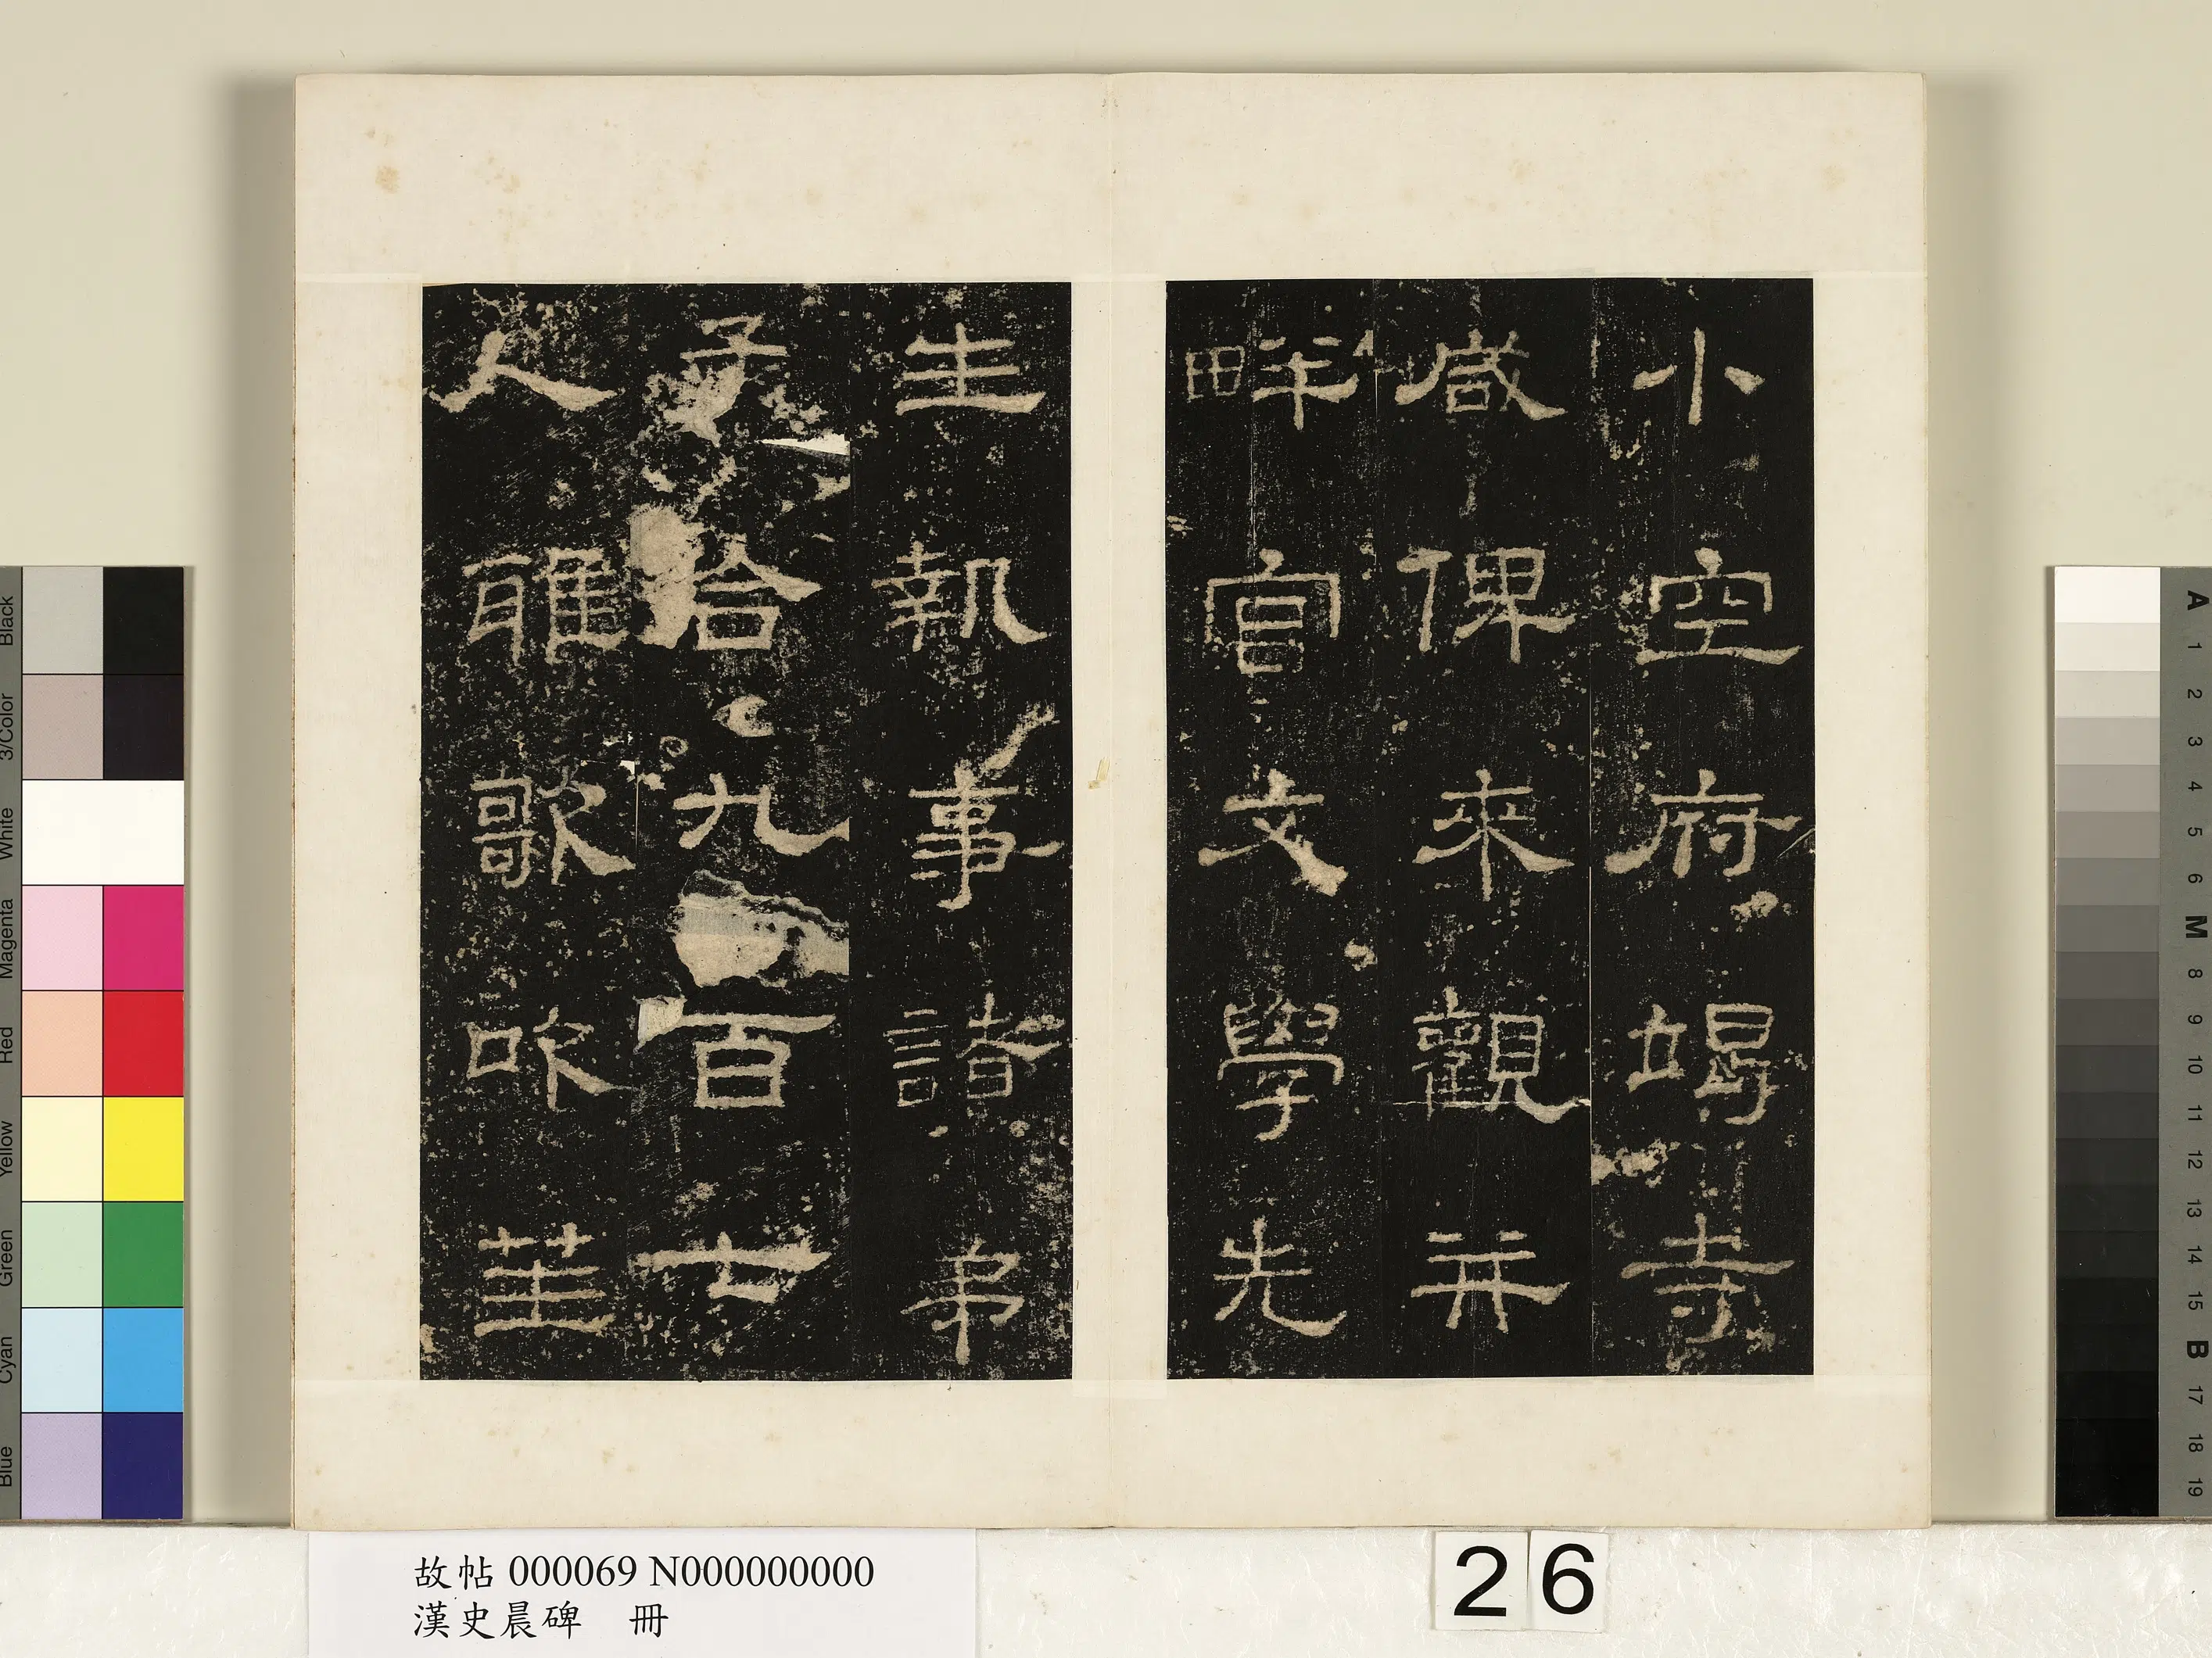 小空府竭寺
咸俾來觀并
畔官文學先
生執事諸弟
子合九百七
人雅歌吹笙
故帖 000069 N000000000
漢史晨碑 冊
26
Black
3/Color
White
Magenta
Red
Yellow
Green
Cyan
Blue
A
1
2
3
4
5
6
M
8
9
10
11
12
13
14
15
B
17
18
19